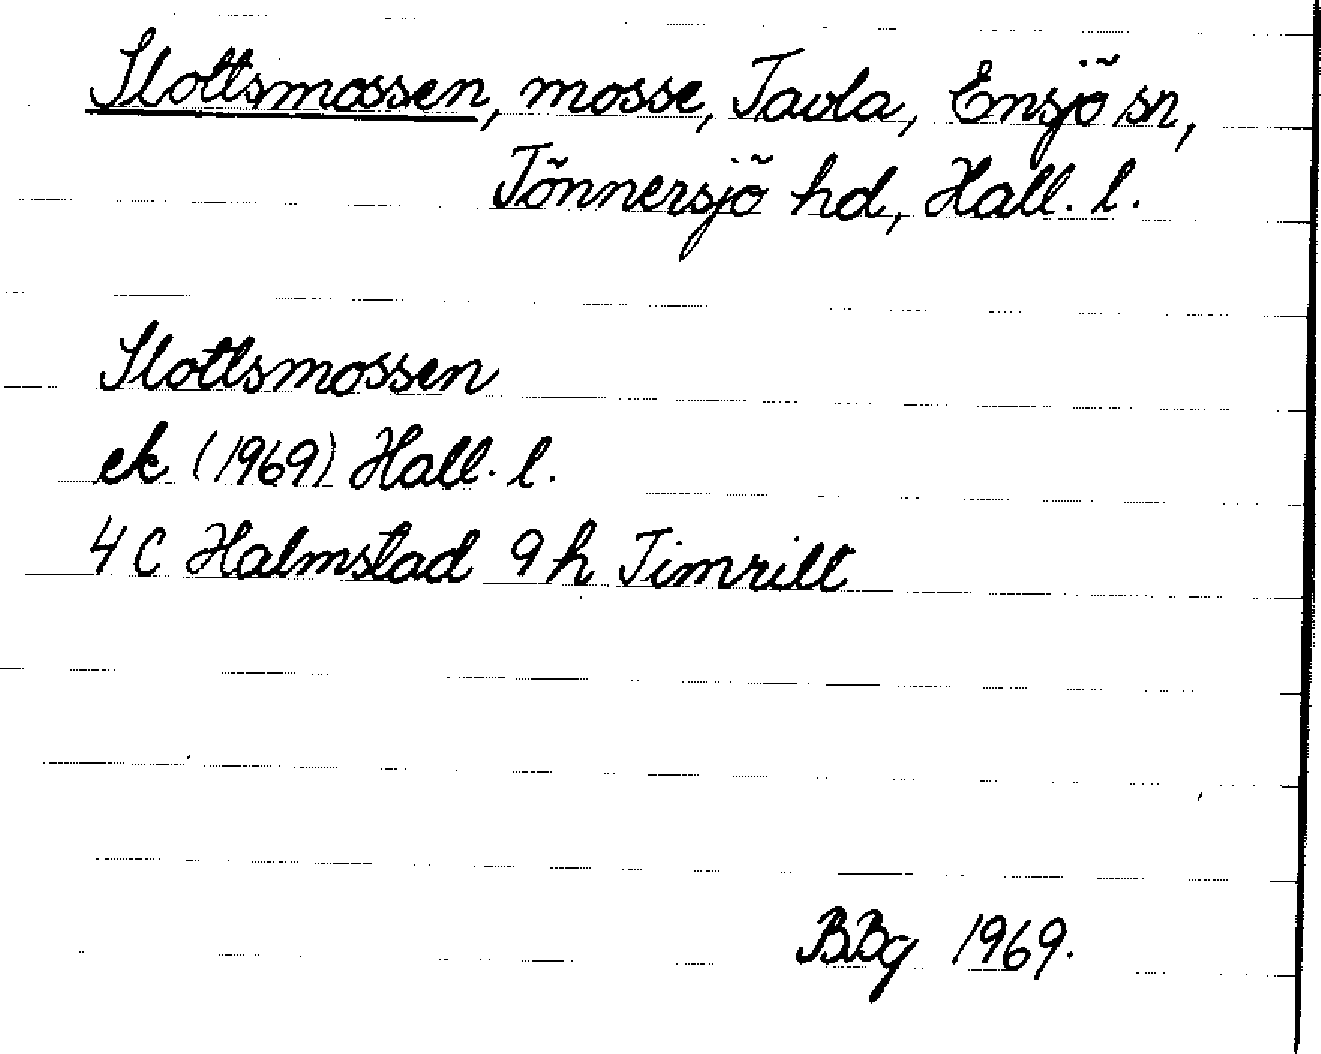 Slottsmossen, mosse, Tavla, Ensjö sn,
Tönnersjö hd, Hall. l.
Slottsmossen
ek (1969) Hall. l.
4 C Halmstad 9 h Timrilt
BBg 1969.